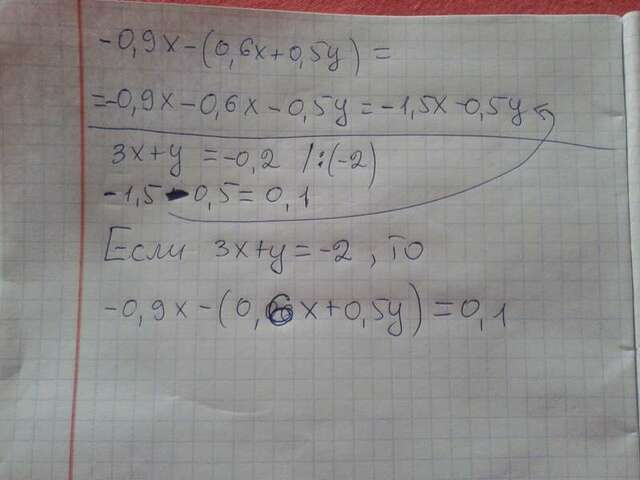 -0,9x-(0,6x+0,5y)=
=-0,9x-0,6x-0,5y=-1,5x-0,5y
3x+y=-0,2 /:(-2)
-1,5-0,5=0,1
Если 3x+y=-2, то
-0,9x-(0,6x+0,5y)=0,1